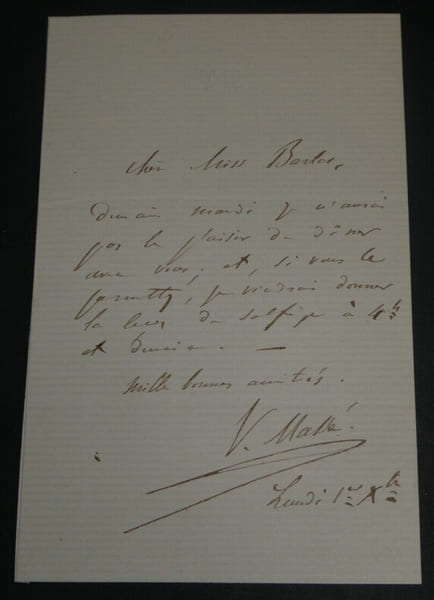 Chère Miss Barlas,
Demain mardi je n'aurai
pas le plaisir de dîner
avec vous; et, si vous le
permettez, je viendrai donner
la leçon de solfège à 4h
et demie. —
Mille bonnes amitiés.
V. Massé.
Lundi 1er Xbre